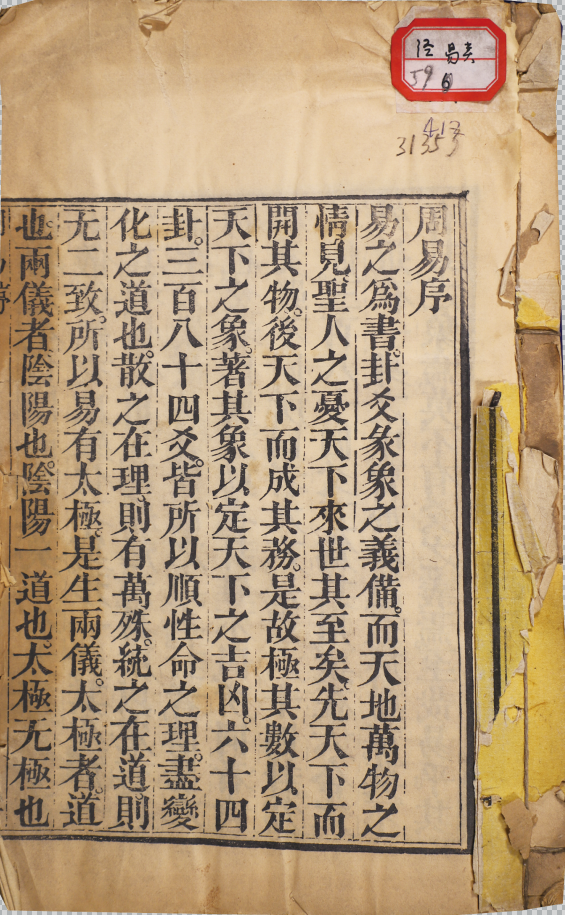 周易序
易之為書。卦爻彖象之義備。而天地萬物之
情見聖人之憂天下來世其至矣。先天下而
開其物。後天下而成其務。是故極其數以定
天下之象。著其象以定天下之吉凶。六十四
卦。三百八十四爻。皆所以順性命之理。盡變
化之道也。散之在理。則有萬殊。統之在道則
无二致。所以易有太極。是生兩儀。太極者。道
也兩儀者陰陽也。陰陽一道也。太極无極也
易
59
31353